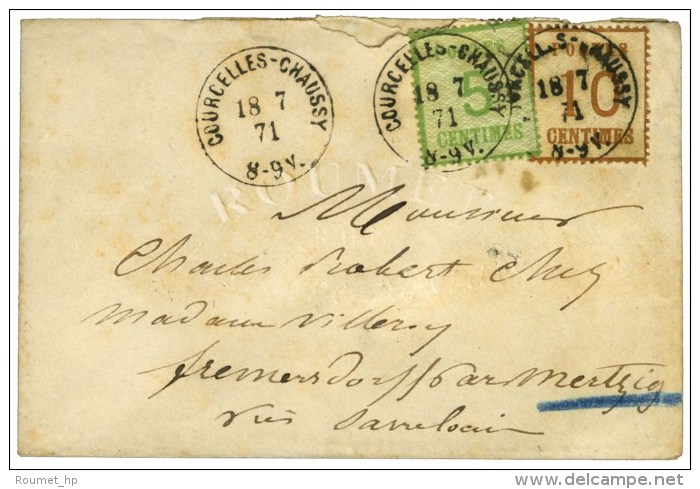 COURCELLES-CHAUSSY
18 7
71
8-9V.
COURCELLES-CHAUSSY
18 7
71
8-9V.
POSTES
5
CENTIMES
18 7
71
8-9V.
POSTES
10
CENTIMES
ROUMET
Monsieur
Charles Robert chez
madame Villeroy
fremersdorff par Mertzig
près Sarrelouis
Roumet_hp
www.delcampe.net